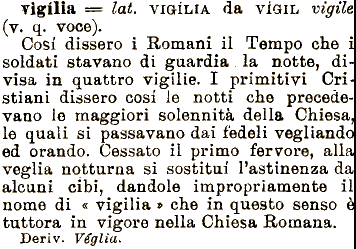 vigília = lat. VIGÍLIA da VÍGIL vigile
(v. q. voce).
Cosí dissero i Romani il Tempo che i
soldati stavano di guardia la notte, di-
visa in quattro vigilie. I primitivi Cri-
stiani dissero cosí le notti che precede-
vano le maggiori solennità della Chiesa,
le quali si passavano dai fedeli vegliando
ed orando. Cessato il primo fervore, alla
veglia notturna si sostituí l'astinenza da
alcuni cibi, dandole impropriamente il
nome di « vigilia » che in questo senso è
tuttora in vigore nella Chiesa Romana.
Deriv. Véglia.